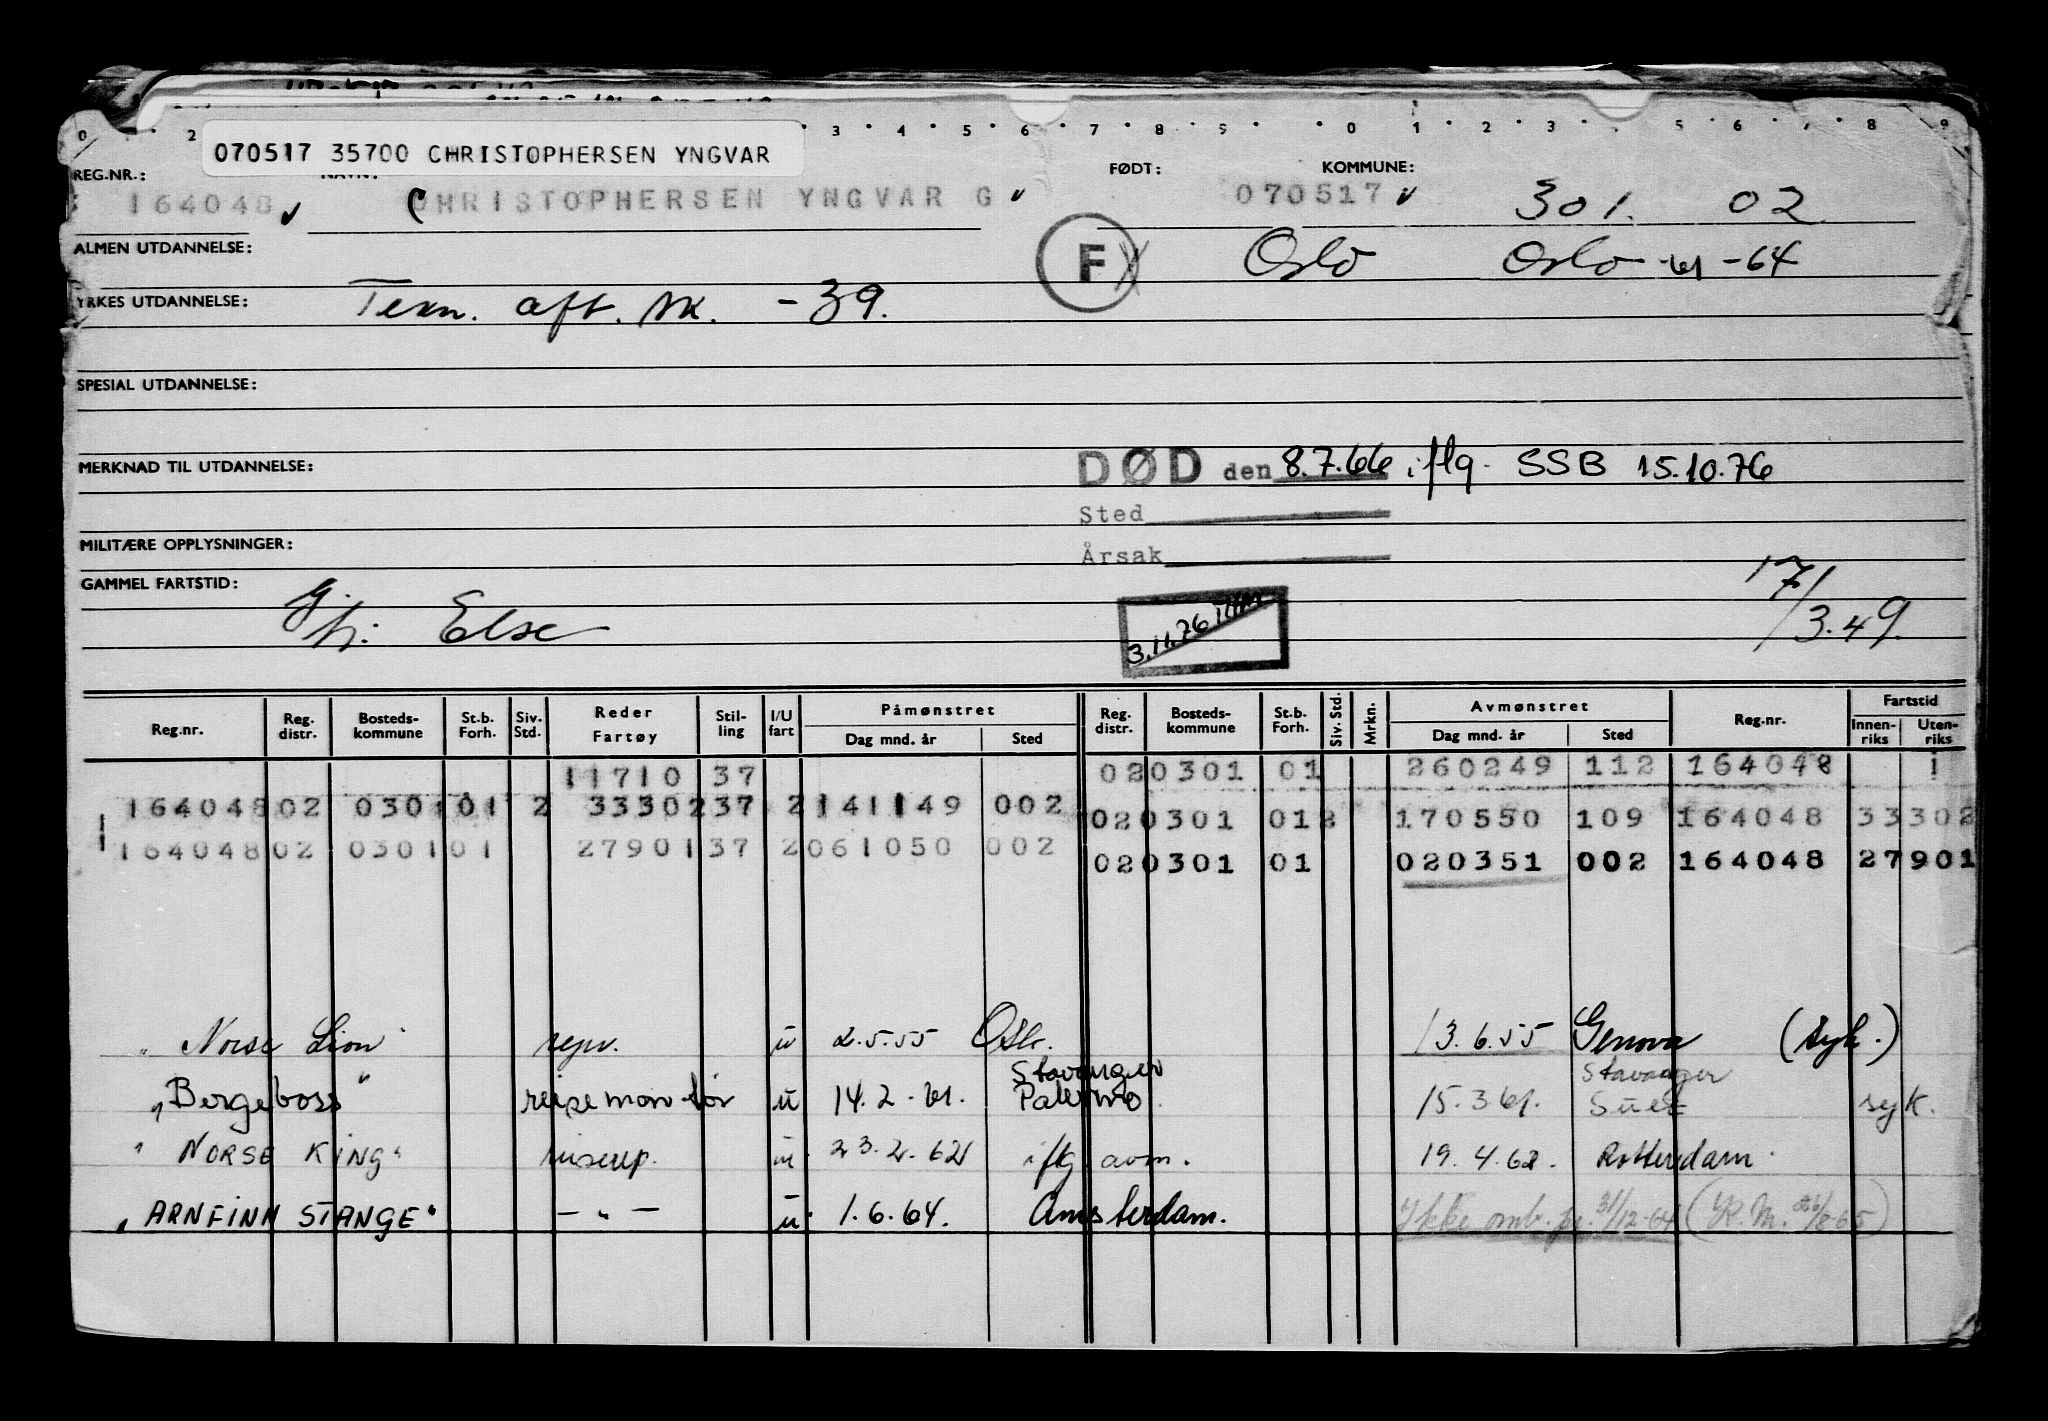 0 2 3 4 5 6 7 8 9 0 1 2 3 5 6 7 8 9
070517 35700 CHRISTOPHERSEN YNGVAR
REG.NR.: NAVN: FØDT: KOMMUNE:
164048 CHRISTOPHERSEN YNGVAR G 070517 301. 02
ALMEN UTDANNELSE: F Oslo Oslo -61 -64
YRKES UTDANNELSE: Tekn. aft. sk. -39.
SPESIAL UTDANNELSE:
MERKNAD TIL UTDANNELSE: DØD den 8.7.66 iflg. SSB 15.10.76
Sted
MILITÆRE OPPLYSNINGER: Årsak
GAMMEL FARTSTID: 17/3.49.
G. h: Else 3.11.76
Reg.nr. Reg. distr. Bosteds-kommune St.b. Forh. Siv. Std. Reder Fartøy Stil-ling I/U fart Påmønstret Dag mnd. år Sted Reg. distr. Bosteds-kommune St.b. Forh. Siv. Std. Mrkn. Avmønstret Dag mnd. år Sted Reg.nr. Fartstid Innen-riks Uten-riks
11710 37 02 0301 01 260249 112 164048 1
164048 02 0301 01 2 33302 37 2 141149 002 02 0301 01 2 170550 109 164048 33302
164048 02 0301 01 27901 37 2 061050 002 02 0301 01 020351 002 164048 27901
" Norse Lion" repr. u 2.5.55 Oslo. 13.6.55 Genova (syk.)
Stavanger Stavanger
"Bergeboss" reisemontør u 14.2-61. Palermo. 15.3 61. Suez syk.
"NORSE KING" reiserep. u. 23.2.62 iflg. avm. 19.4.62. Rotterdam.
"ARNFINN STANGE" - " - u. 1.6.64. Amsterdam. Ikke omb. pr. 31/12-64 (R.M. 26/8-65)